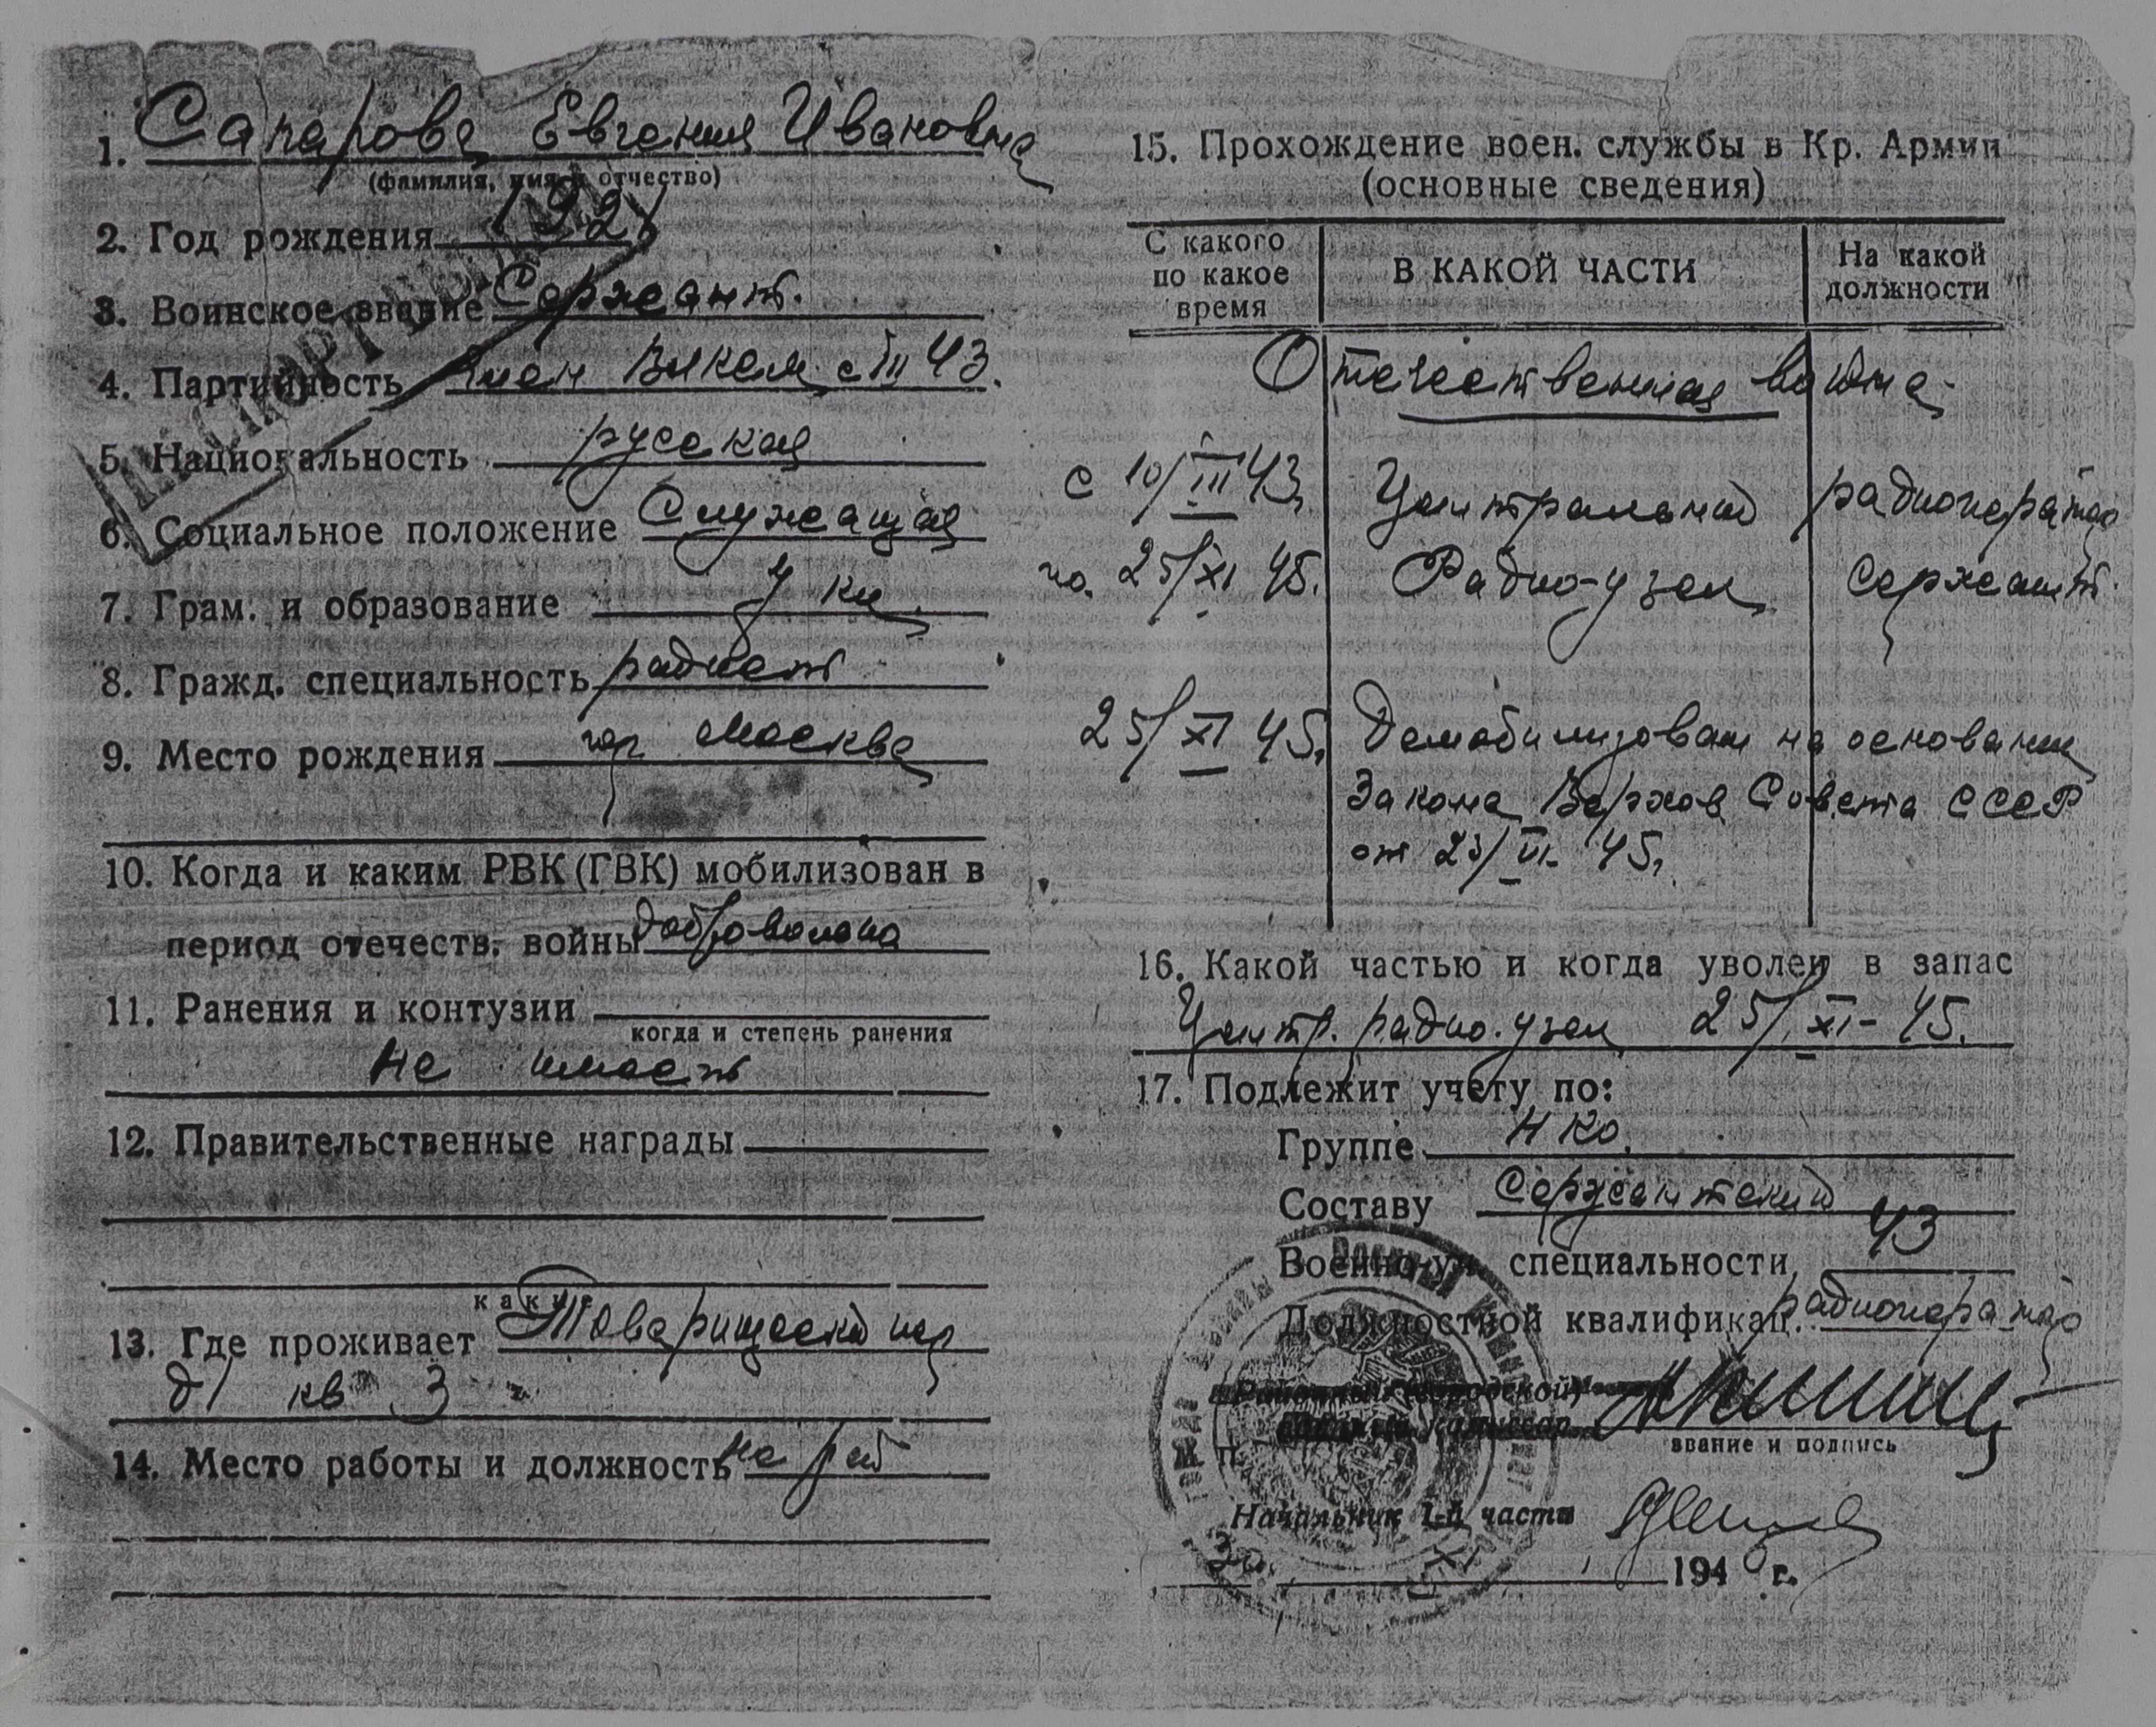 1. Сапарова Евгения Ивановна
(фамилия, имя и отчество)
2. Год рождения 1921
3. Воинское звание Сержант.
4. Партийность член Влксм с III 43.
5. Национальность русская
6. Социальное положение Служащая
7. Грам. и образование 7 кл.
8. Гражд. специальность радист
9. Место рождения гор Москва
10. Когда и каким РВК (ГВК) мобилизован в
период отечеств. войны добровольно
11. Ранения и контузии
когда и степень ранения
не имеет
12. Правительственные награды
какие
13. Где проживает Товарищеский пер
д 1 кв 3
14. Место работы и должность не раб
15. Прохождение воен. службы в Кр. Армии
(основные сведения)
С какого по какое время В КАКОЙ ЧАСТИ На какой должности
Отечественная война
с 10/III 43 Центральный радиооператор
по 25/XI 45. Радио-узел Сержант.
25/XI 45. Демобилизован на основании
Закона Верхов Совета СССР
от 23/VI 45.
16. Какой частью и когда уволен в запас
Центр. радио. узел 25/XI-45.
17. Подлежит учету по:
Группе НКО.
Составу Сержантский
Военно-уч. специальности 43
Должностной квалификац. радиооператор
звание и подпись
М. П.
Начальник 1-й части
30. XI 194 г.